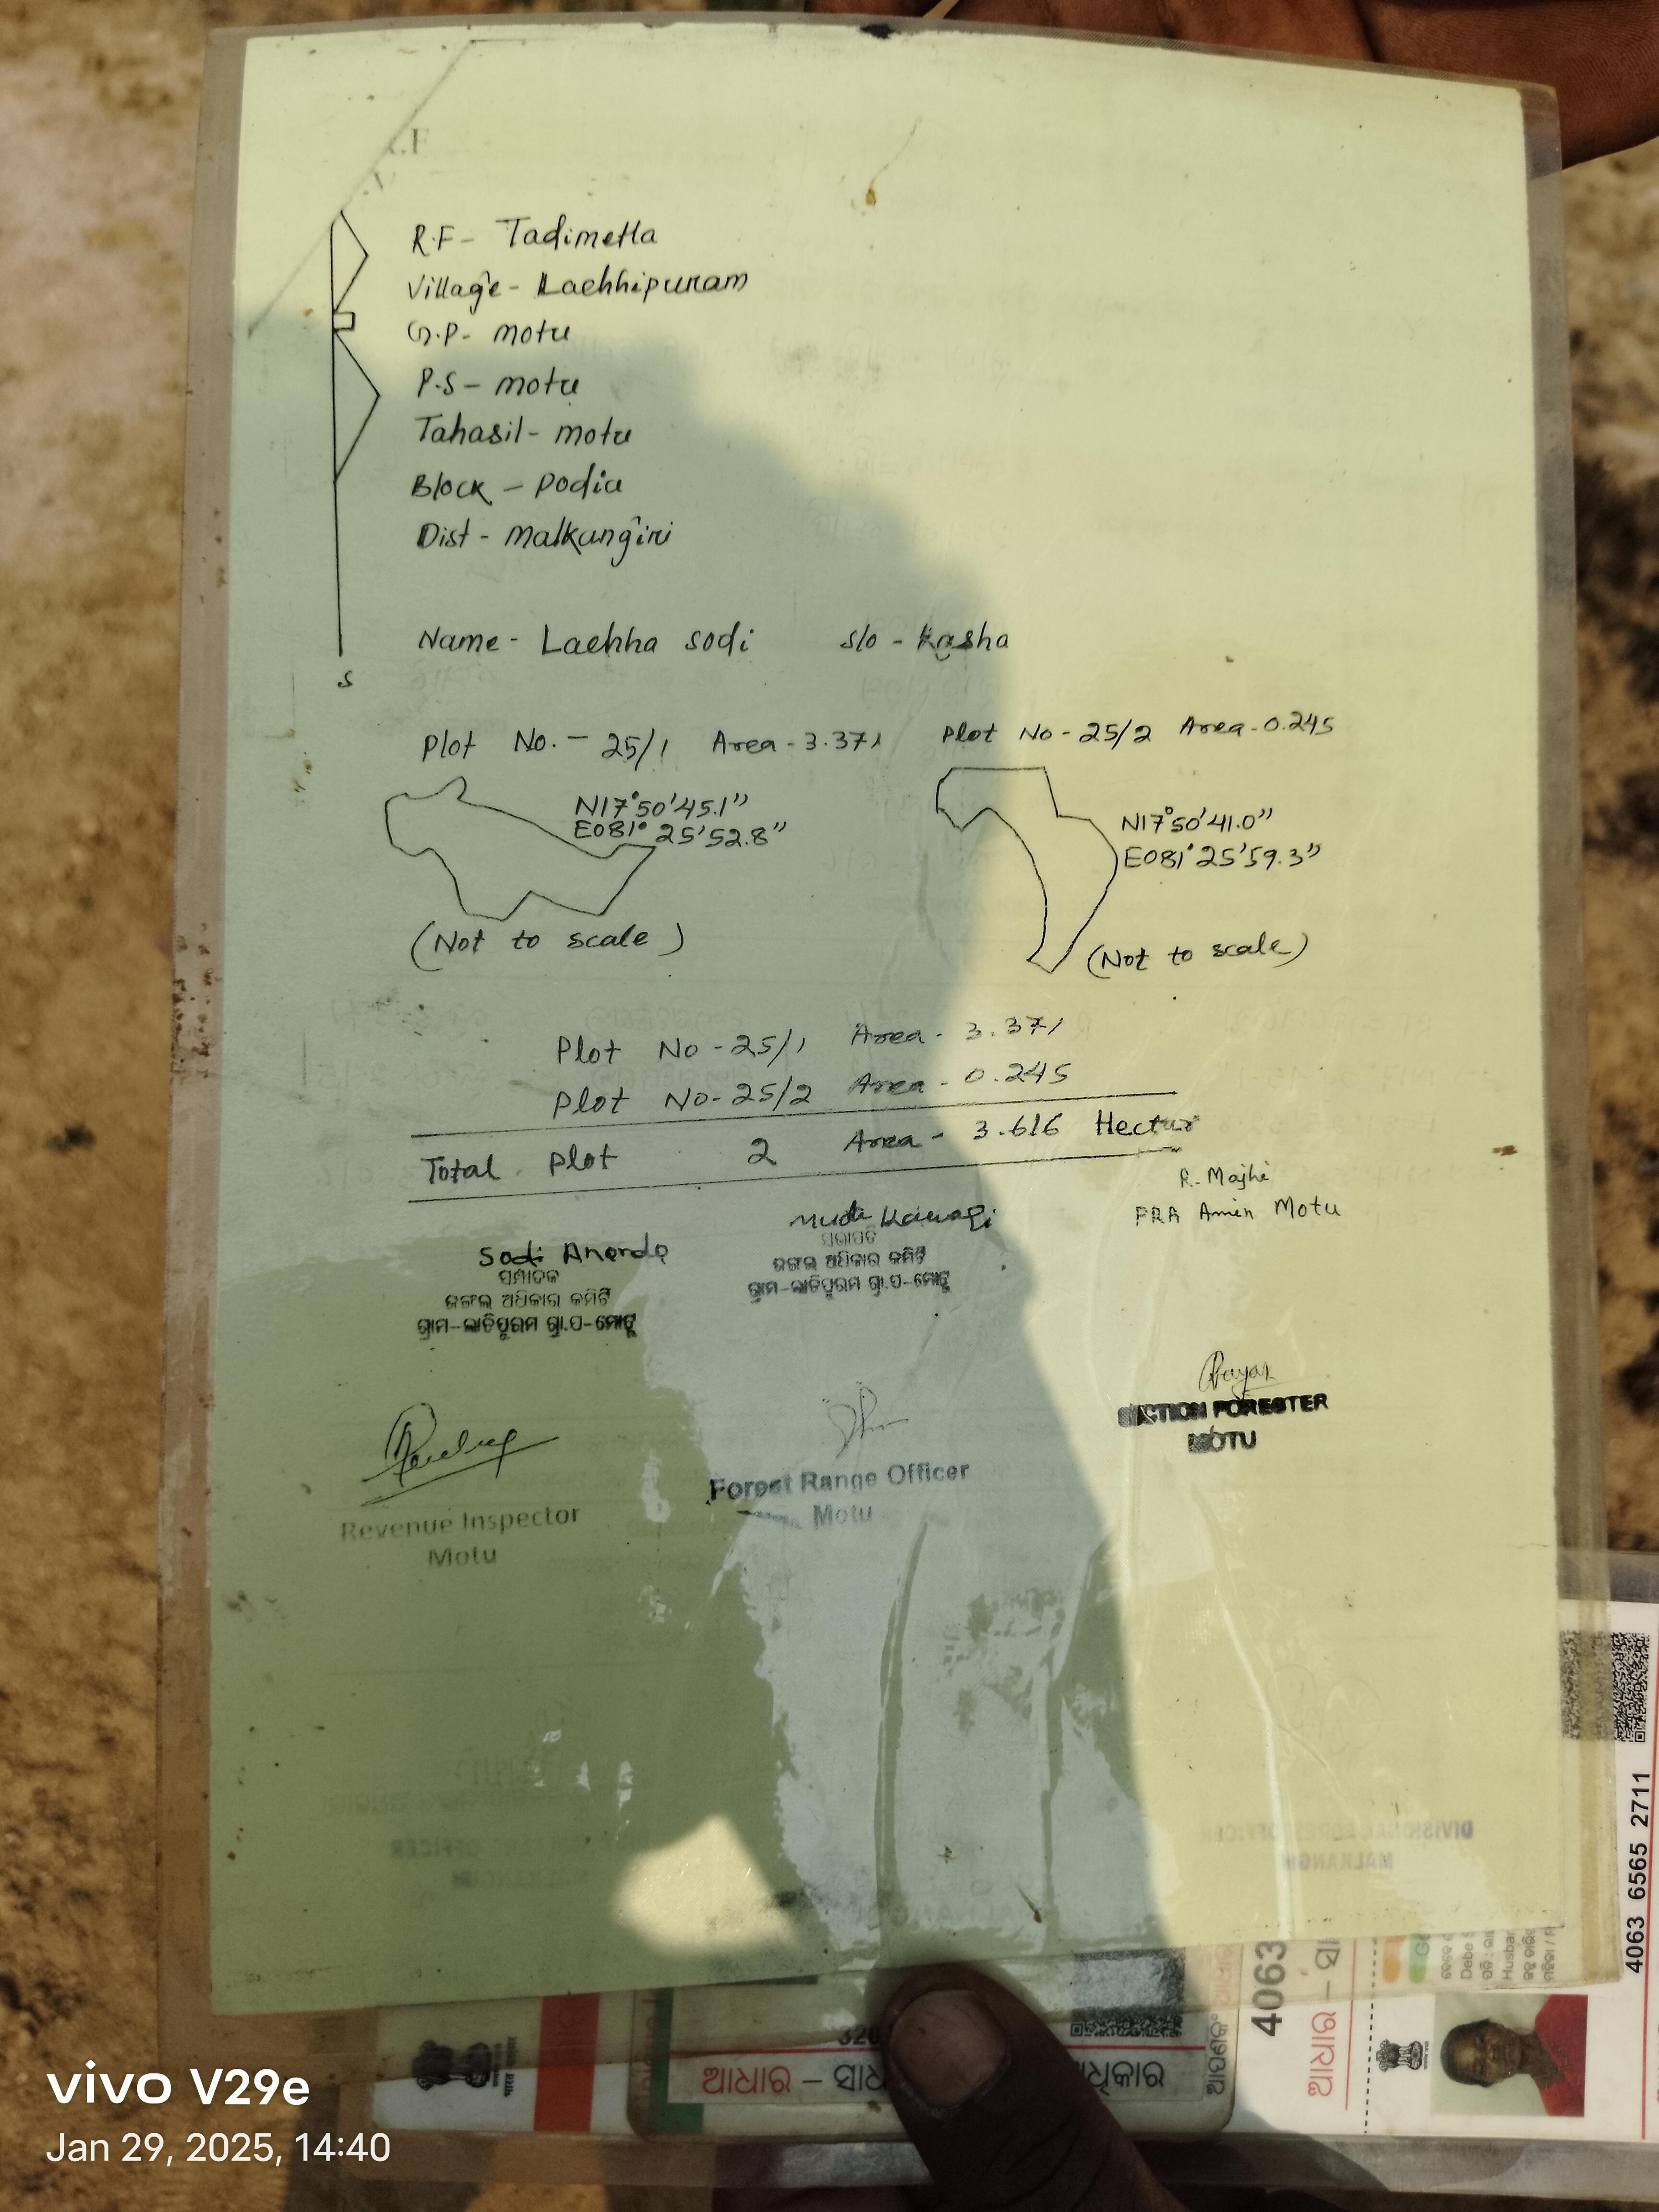 R.F- Tadimetla
Village- Lachhipuram
G.P- motu
P.S- motu
Tahasil- motu
Block - Podia
Dist - Malkangiri
Name - Lachha sodi s/o - Kasha
S
Plot No. - 25/1 Area - 3.371 Plot No - 25/2 Area - 0.245
N17°50'45.1"
E081°25'52.8"
N17°50'41.0"
E081°25'59.3"
(Not to scale)
(Not to scale)
Plot No - 25/1 Area - 3.371
Plot No - 25/2 Area - 0.245
Total Plot 2 Area - 3.616 Hectur
R. Majhi
FRA Amin Motu
ସଭାପତି
ଜଙ୍ଗଲ ଅଧିକାର କମିଟି
ଗ୍ରାମ-ଲାଚିପୁରମ ଗ୍ରା.ପ-ମୋଟୁ
Sodi
ସମ୍ପାଦକ
ଜଙ୍ଗଲ ଅଧିକାର କମିଟି
ଗ୍ରାମ-ଲାଚିପୁରମ ଗ୍ରା.ପ-ମୋଟୁ
SECTION FORESTER
MOTU
Forest Range Officer
Motu
Revenue Inspector
Motu
DIVISIONAL FOREST OFFICER
4063 6565 2711
4063
ଆଧାର
ଆଧାର
vivo V29e
Jan 29, 2025, 14:40